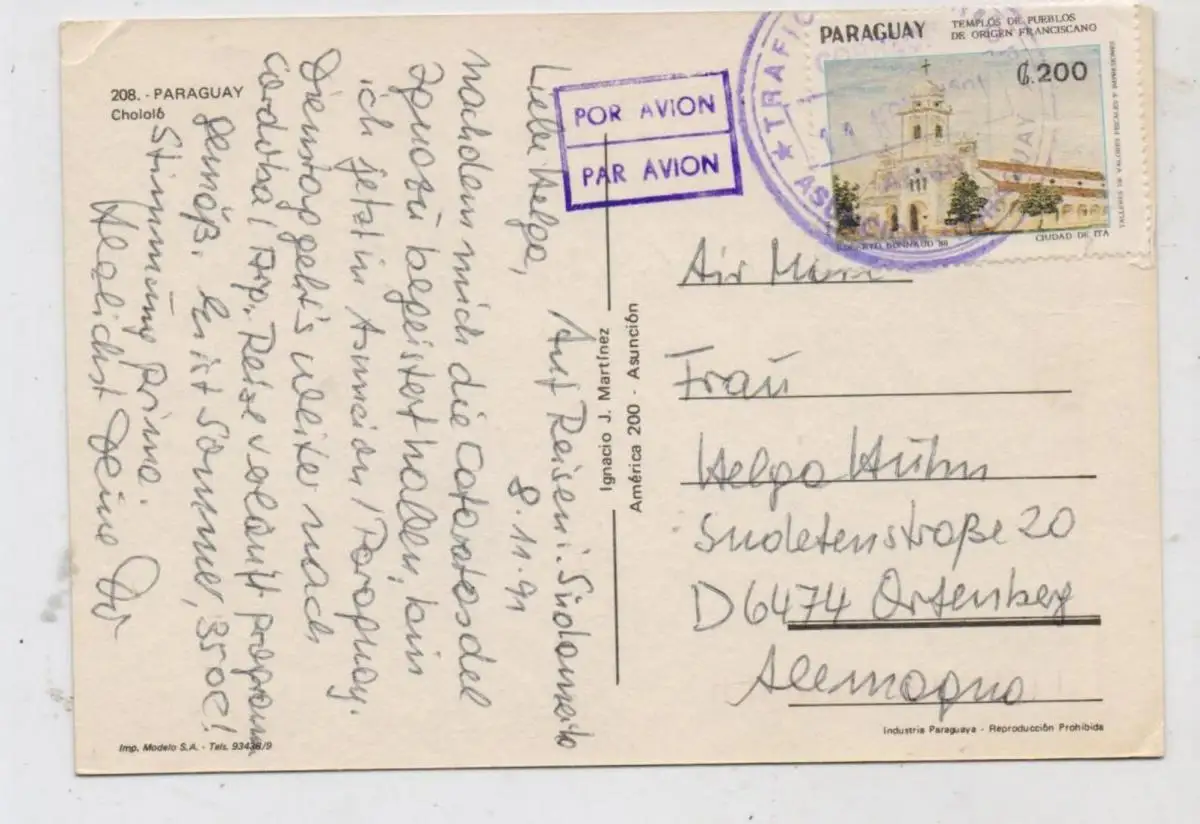 208. - PARAGUAY
Chololó
Auf Reisen i. Südamerika
8.11.91
Liebe Helga,
nachdem mich die Cataratas del
Iguasú begeistert haben, bin
ich jetzt in Asuncion / Paraguay.
Dienstag geht's weiter nach
Cordoba / Arg.. Reise verläuft programm
gemäß. Es ist Sommer, 35°C!
Stimmung prima.
Herzlichst Deine
Ignacio J. Martínez
América 200 - Asunción
POR AVION
PAR AVION
PARAGUAY
TEMPLOS DE PUEBLOS
DE ORIGEN FRANCISCANO
₲.200
CIUDAD DE ITA
TALLERES DE VALORES FISCALES Y IMPRESIONES
BONNAUD 88
★ TRAFICO
ASUNCION
Air Mail
Frau
Helga Hühn
Sudetenstraße 20
D 6474 Ortenberg
Alemagna
Imp. Modelo S.A. - Tels. 93438/9
Industria Paraguaya - Reproducción Prohibida